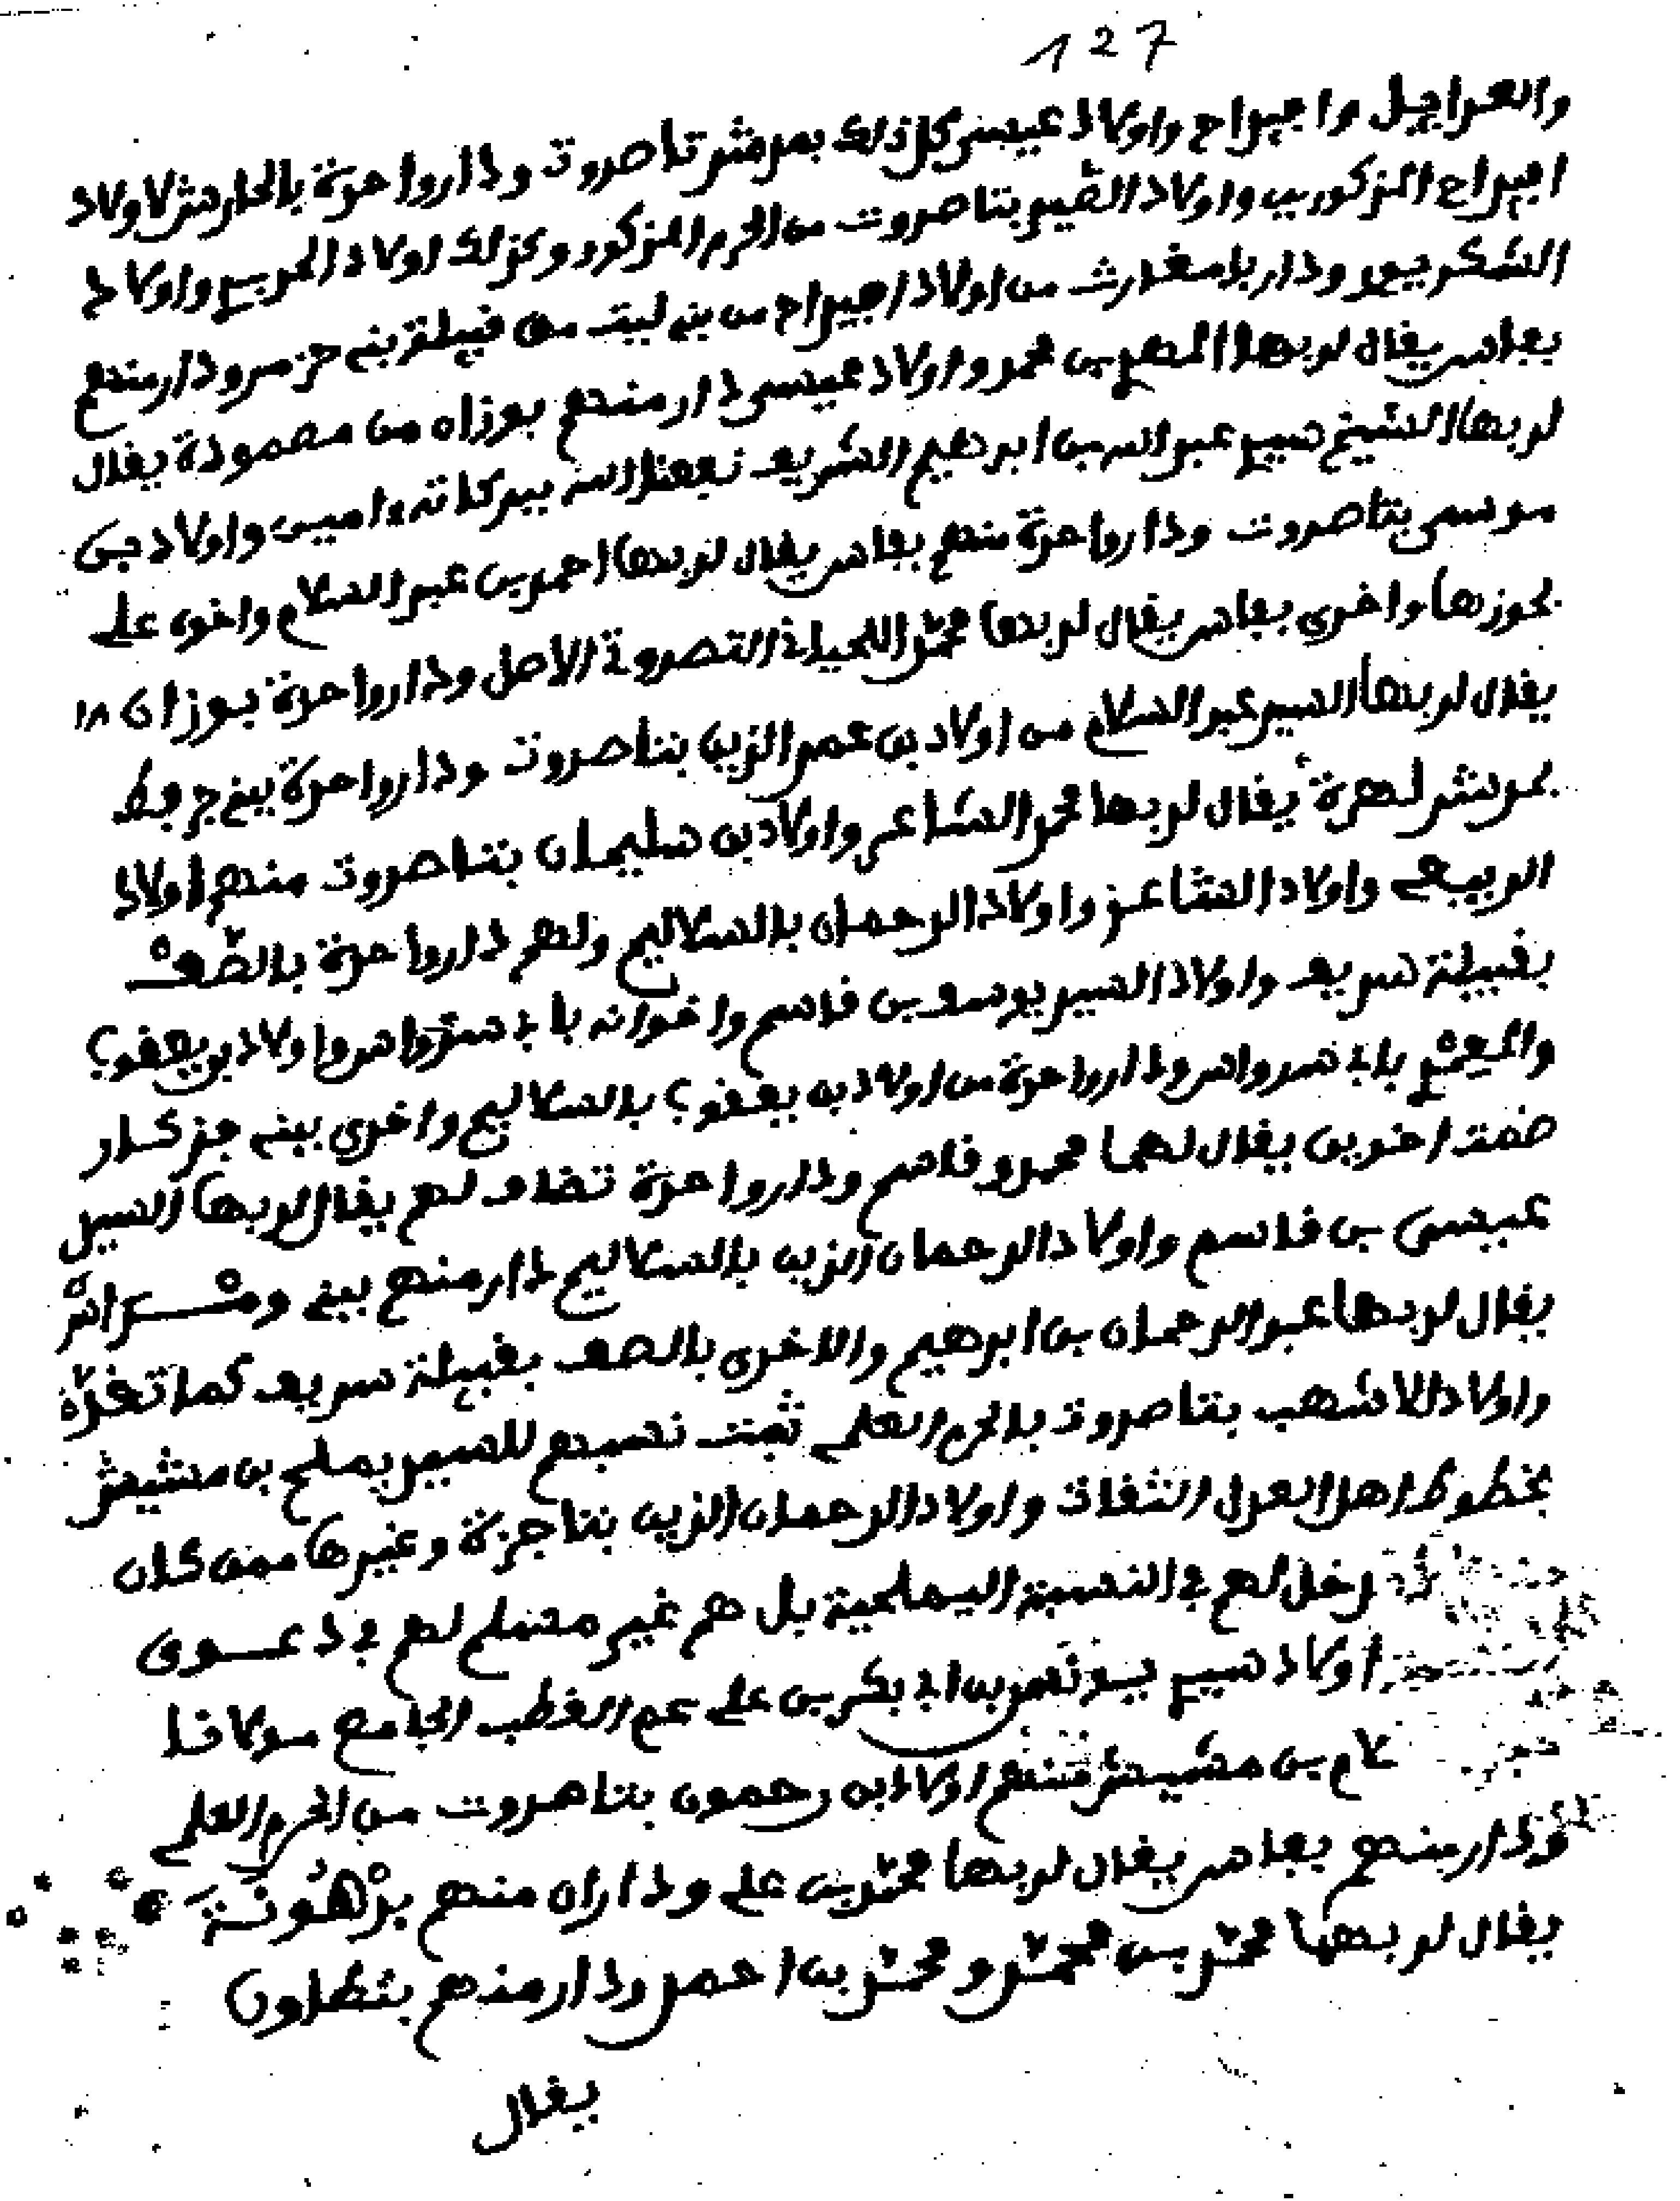 127
والعراجل وافيراح واولاد عيسى كل ذلك بمدشر تاصروت ودار واحدة بالحارش لاولاد
افيراح المذكورين واولاد الضير بتاصروت من الحرم المذكور وكذلك اولاد الحربي واولاد
الشكريين ودار بامغارث من اولاد افيراح من بني ليث من قبيلة بني حزمر ودار منهم
بفاس يقال لربها المهدي بن محمد واولاد عيسى دار منهم بوزان من مصمودة يقال
لربها الشيخ سيدي عبد الله بن ابرهيم الشريف نفعنا الله ببركاته ءامين واولاد بن
موسى بتاصروت ودار واحدة منهم بفاس يقال لربها احمد بن عبد السلام واخوه علي
بحوزها واخرى بفاس يقال لربها محمد اللحياني التصروتي الاصل ودار واحدة بوزان
يقال لربها السيد عبد السلام من اولاد بن عمر الذين بتاصروت ودار واحدة ببني جرفط
بمدشر لهرة يقال لربها محمد الشاعر واولاد بن سليمان بتاصروت منهم اولاد
الربيعي واولاد القاعز واولاد الرحمان بالسلاليم ولهم دار واحدة بالصف
بقبيلة سريف واولاد السيد يوسف بن قاسم واخوانه بابي سدواس واولاد بن يعقوب
بابي سدواس ودار واحدة من اولاد بن يعقوب بالسلاليم واخرى ببني جزكار
ضمت اخوين يقال لهما محمد وقاسم ودار واحدة تضاف لهم يقال لربها السيد
عيسى بن قاسم واولاد الرحمان الذين بالسلاليم دار منهم ببني ومراس
يقال لربها عبد الرحمان بن ابرهيم والاخرى بالصف بقبيلة سريف كما تقدم
واولاد الاشهب بتاصروت بالحرم العلمي ثبت نسبهم للسيد يملح بن مشيش
بخطوط اهل العدل الثقات واولاد الرحمان الذين بتاجزة وغيرها ممن كان
دخل لهم في النسبة اليملحية بل هم غير مسلم لهم في دعوى
اولاد سيدي يونس بن ابي بكر بن علي عم القطب الجامع مولانا
بن مشيش فمنهم اولاد بن رحمون بتاصروت من الحرم العلمي
ودار منهم بفاس يقال لربها محمد بن علي وداران منهم برهونة
يقال لربها محمد بن محمد ومحمد بن احمد ودار منهم بتطاون
يقال